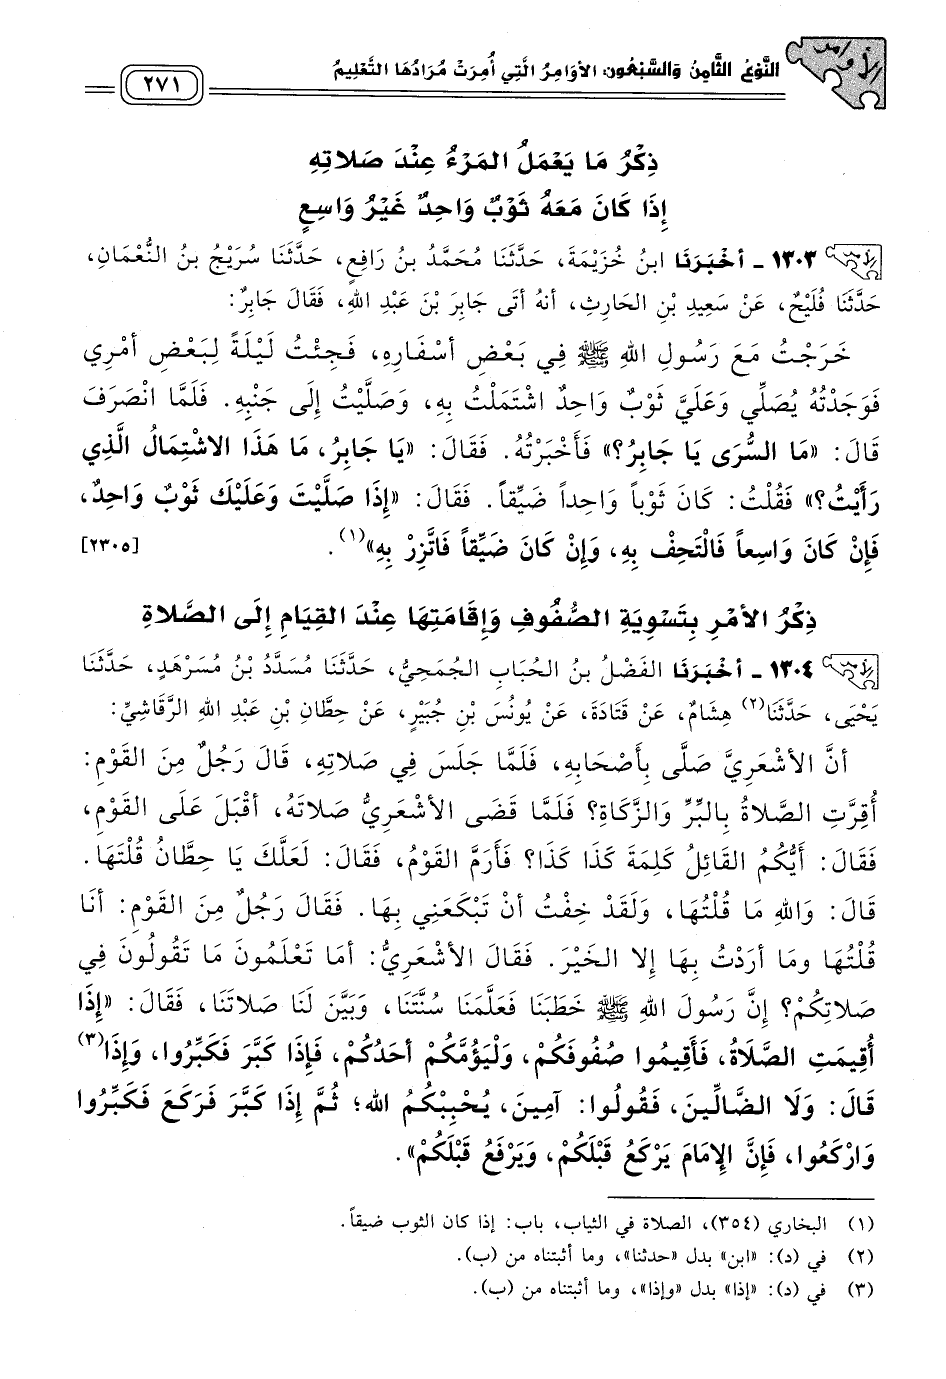 الأوامر
النَّوْعُ الثَّامِنُ وَالسَّبْعُونَ الأوَامِرُ الَّتِي أُمِرَتْ مُرَادُهَا التَّعْلِيمُ
٢٧١
ذِكْرُ مَا يَعْمَلُ المَرْءُ عِنْدَ صَلاتِهِ
إِذَا كَانَ مَعَهُ ثَوْبٌ وَاحِدٌ غَيْرُ وَاسِعٍ
١٣٠٣ - أخْبَرَنَا ابنُ خُزَيْمَةَ، حَدَّثَنَا مُحَمَّدُ بنُ رَافِعٍ، حَدَّثَنَا سُرَيْجُ بنُ النُّعْمَانِ،
حَدَّثَنَا فُلَيْحٌ، عَنْ سَعِيدِ بْنِ الحَارِثِ، أنهُ أتَى جَابِرَ بْنَ عَبْدِ اللهِ، فَقَالَ جَابِرٌ:
خَرَجْتُ مَعَ رَسُولِ اللهِ ﷺ فِي بَعْضِ أسْفَارِهِ، فَجِئْتُ لَيْلَةً لِبَعْضِ أمْرِي
فَوَجَدْتُهُ يُصَلِّي وَعَلَيَّ ثَوْبٌ وَاحِدٌ اشْتَمَلْتُ بِهِ، وَصَلَّيْتُ إِلَى جَنْبِهِ. فَلَمَّا انْصَرَفَ
قَالَ: «مَا السُّرَى يَا جَابِرُ؟» فَأخْبَرْتُهُ. فَقَالَ: «يَا جَابِرُ، مَا هَذَا الاشْتِمَالُ الَّذِي
رَأيْتُ؟» فَقُلْتُ: كَانَ ثَوْباً وَاحِداً ضَيِّقاً. فَقَالَ: «إِذَا صَلَّيْتَ وَعَلَيْكَ ثَوْبٌ وَاحِدٌ،
فَإِنْ كَانَ وَاسِعاً فَالْتَحِفْ بِهِ، وَإِنْ كَانَ ضَيِّقاً فَاتَّزِرْ بِهِ»(١). [٢٣٠٥]
ذِكْرُ الأمْرِ بِتَسْوِيَةِ الصُّفُوفِ وَإِقَامَتِهَا عِنْدَ القِيَامِ إِلَى الصَّلاةِ
١٣٠٤ - أخْبَرَنَا الفَضْلُ بنُ الحُبَابِ الجُمَحِيُّ، حَدَّثَنَا مُسَدَّدُ بْنُ مُسَرْهَدٍ، حَدَّثَنَا
يَحْيَى، حَدَّثَنَا(٢) هِشَامٌ، عَنْ قَتَادَةَ، عَنْ يُونُسَ بْنِ جُبَيْرٍ، عَنْ حِطَّانِ بْنِ عَبْدِ اللهِ الرَّقَاشِيِّ:
أنَّ الأشْعَرِيَّ صَلَّى بِأصْحَابِهِ، فَلَمَّا جَلَسَ فِي صَلاتِهِ، قَالَ رَجُلٌ مِنَ القَوْمِ:
أُقِرَّتِ الصَّلاةُ بِالبِرِّ وَالزَّكَاةِ؟ فَلَمَّا قَضَى الأشْعَرِيُّ صَلاتَهُ، أقْبَلَ عَلَى القَوْمِ،
فَقَالَ: أيُّكُمُ القَائِلُ كَلِمَةَ كَذَا كَذَا؟ فَأرَمَّ القَوْمُ، فَقَالَ: لَعَلَّكَ يَا حِطَّانُ قُلْتَهَا.
قَالَ: وَاللهِ مَا قُلْتُهَا، وَلَقَدْ خِفْتُ أنْ تَبْكَعَنِي بِهَا. فَقَالَ رَجُلٌ مِنَ القَوْمِ: أنَا
قُلْتُهَا ومَا أرَدْتُ بِهَا إِلا الخَيْرَ. فَقَالَ الأشْعَرِيُّ: أمَا تَعْلَمُونَ مَا تَقُولُونَ فِي
صَلاتِكُمْ؟ إِنَّ رَسُولَ اللهِ ﷺ خَطَبَنَا فَعَلَّمَنَا سُنَّتَنَا، وَبَيَّنَ لَنَا صَلاتَنَا، فَقَالَ: «إِذَا
أُقِيمَتِ الصَّلَاةُ، فَأقِيمُوا صُفُوفَكُمْ، وَلْيَؤُمَّكُمْ أحَدُكُمْ، فَإِذَا كَبَّرَ فَكَبِّرُوا، وَإِذَا(٣)
قَالَ: وَلَا الضَّالِّينَ، فَقُولُوا: آمِينَ، يُحْبِبْكُمُ اللهُ؛ ثُمَّ إِذَا كَبَّرَ فَرَكَعَ فَكَبِّرُوا
وَارْكَعُوا، فَإِنَّ الإِمَامَ يَرْكَعُ قَبْلَكُمْ، وَيَرْفَعُ قَبْلَكُمْ».
(١) البخاري (٣٥٤)، الصلاة في الثياب، باب: إذا كان الثوب ضيقاً.
(٢) في (د): «ابن» بدل «حدثنا»، وما أثبتناه من (ب).
(٣) في (د): «إذا» بدل «وإذا»، وما أثبتناه من (ب).